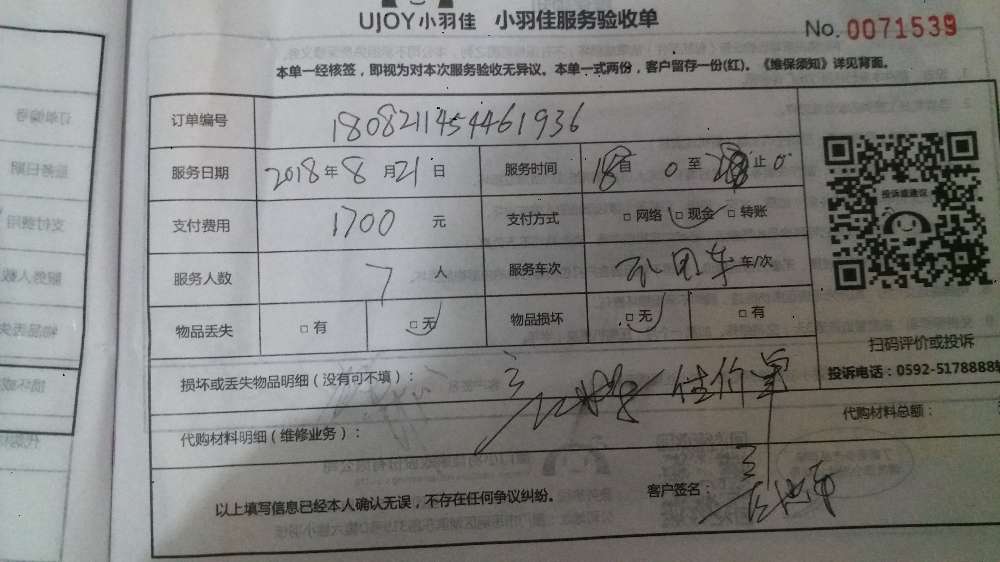 UJOY小羽佳 小羽佳服务验收单
No. 0071539
本单一经核签，即视为对本次服务验收无异议。本单一式两份，客户留存一份(红)。《维保须知》详见背面。
订单编号 180821145446 1936
服务日期 2018年8月21日 服务时间 18 0 至 止 0
支付费用 1700 元 支付方式 □网络 □现金 □转账
服务人数 7 人 服务车次 车/次
物品丢失 □有 □无 物品损坏 □无 □有
投诉或建议
扫码评价或投诉
投诉电话：0592-5178888
损坏或丢失物品明细（没有可不填）：
估价单
代购材料总额：
代购材料明细（维修业务）：
以上填写信息已经本人确认无误，不存在任何争议纠纷。 客户签名：